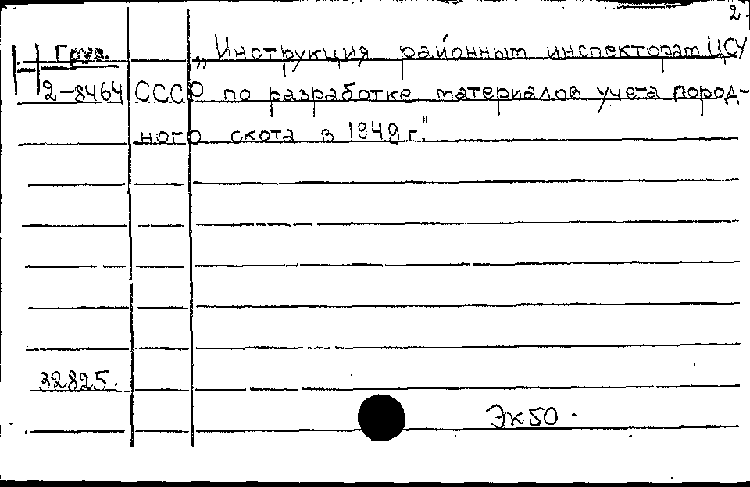 2.
Груз. „Инструкция районным инспекторам ЦСУ
Н 2-8464 СССР по разработке материалов учета пород-
ного скота в 1949 г."
32825.
Эк50.